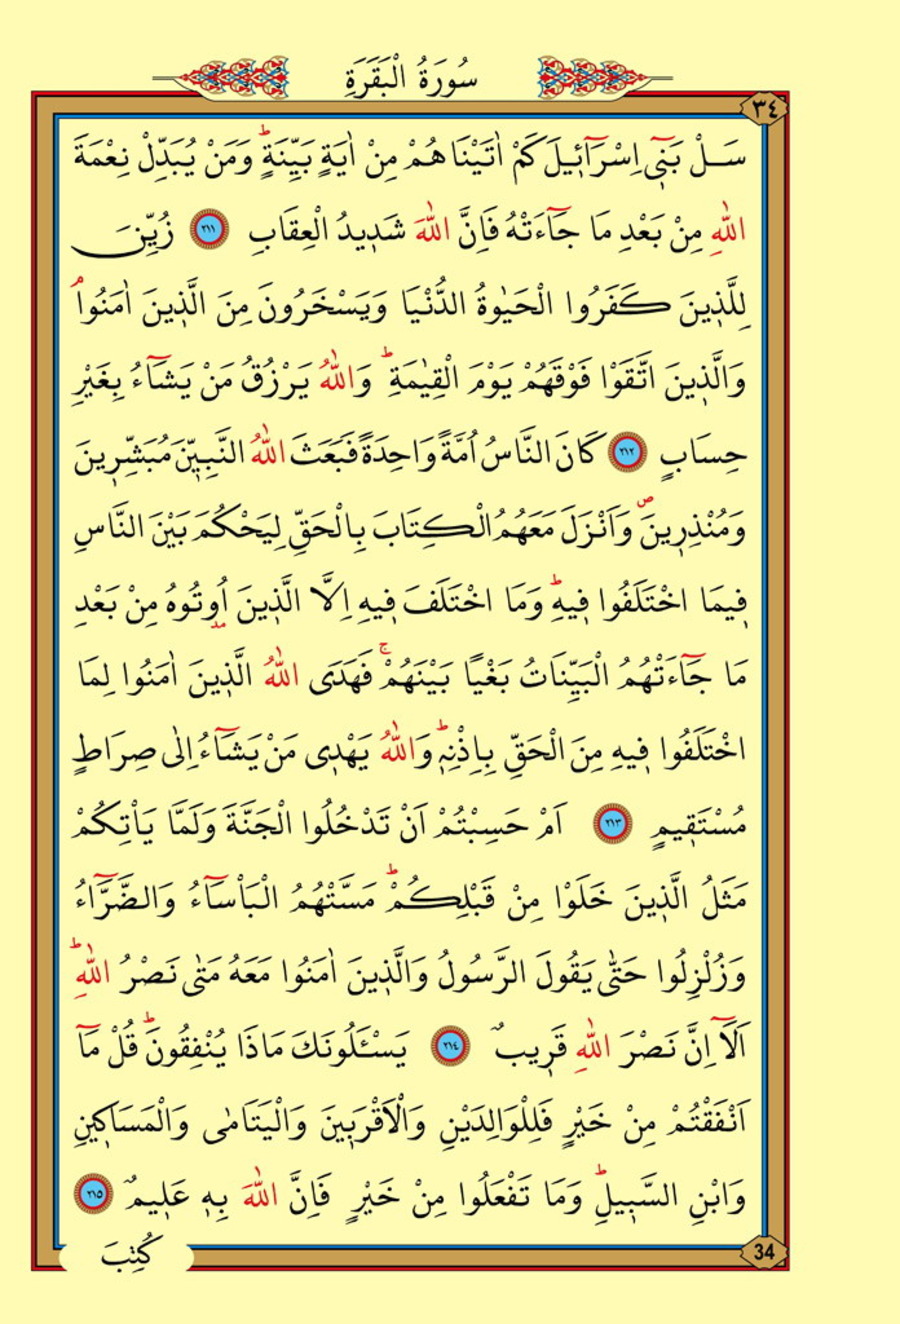 سُورَةُ الْبَقَرَةِ
٣٤
سَلْ بَنٖٓي اِسْرَٓائٖيلَ كَمْ اٰتَيْنَاهُمْ مِنْ اٰيَةٍ بَيِّنَةٍؕ وَمَنْ يُبَدِّلْ نِعْمَةَ
اللّٰهِ مِنْ بَعْدِ مَا جَٓاءَتْهُ فَاِنَّ اللّٰهَ شَدٖيدُ الْعِقَابِ ٢١١ زُيِّنَ
لِلَّذٖينَ كَفَرُوا الْحَيٰوةُ الدُّنْيَا وَيَسْخَرُونَ مِنَ الَّذٖينَ اٰمَنُواۘ
وَالَّذٖينَ اتَّقَوْا فَوْقَهُمْ يَوْمَ الْقِيٰمَةِؕ وَاللّٰهُ يَرْزُقُ مَنْ يَشَٓاءُ بِغَيْرِ
حِسَابٍ ٢١٢ كَانَ النَّاسُ اُمَّةً وَاحِدَةً فَبَعَثَ اللّٰهُ النَّبِيّٖنَ مُبَشِّرٖينَ
وَمُنْذِرٖينَࣕ وَاَنْزَلَ مَعَهُمُ الْكِتَابَ بِالْحَقِّ لِيَحْكُمَ بَيْنَ النَّاسِ
فٖيمَا اخْتَلَفُوا فٖيهِؕ وَمَا اخْتَلَفَ فٖيهِ اِلَّا الَّذٖينَ اُو۫تُوهُ مِنْ بَعْدِ
مَا جَٓاءَتْهُمُ الْبَيِّنَاتُ بَغْيًا بَيْنَهُمْۚ فَهَدَى اللّٰهُ الَّذٖينَ اٰمَنُوا لِمَا
اخْتَلَفُوا فٖيهِ مِنَ الْحَقِّ بِاِذْنِهٖؕ وَاللّٰهُ يَهْدٖي مَنْ يَشَٓاءُ اِلٰى صِرَاطٍ
مُسْتَقٖيمٍ ٢١٣ اَمْ حَسِبْتُمْ اَنْ تَدْخُلُوا الْجَنَّةَ وَلَمَّا يَاْتِكُمْ
مَثَلُ الَّذٖينَ خَلَوْا مِنْ قَبْلِكُمْؕ مَسَّتْهُمُ الْبَاْسَٓاءُ وَالضَّرَّٓاءُ
وَزُلْزِلُوا حَتّٰى يَقُولَ الرَّسُولُ وَالَّذٖينَ اٰمَنُوا مَعَهُ مَتٰى نَصْرُ اللّٰهِؕ
اَلَٓا اِنَّ نَصْرَ اللّٰهِ قَرٖيبٌ ٢١٤ يَسْـَٔلُونَكَ مَاذَا يُنْفِقُونَؕ قُلْ مَٓا
اَنْفَقْتُمْ مِنْ خَيْرٍ فَلِلْوَالِدَيْنِ وَالْاَقْرَبٖينَ وَالْيَتَامٰى وَالْمَسَاكٖينِ
وَابْنِ السَّبٖيلِؕ وَمَا تَفْعَلُوا مِنْ خَيْرٍ فَاِنَّ اللّٰهَ بِهٖ عَلٖيمٌ ٢١٥
كُتِبَ
34